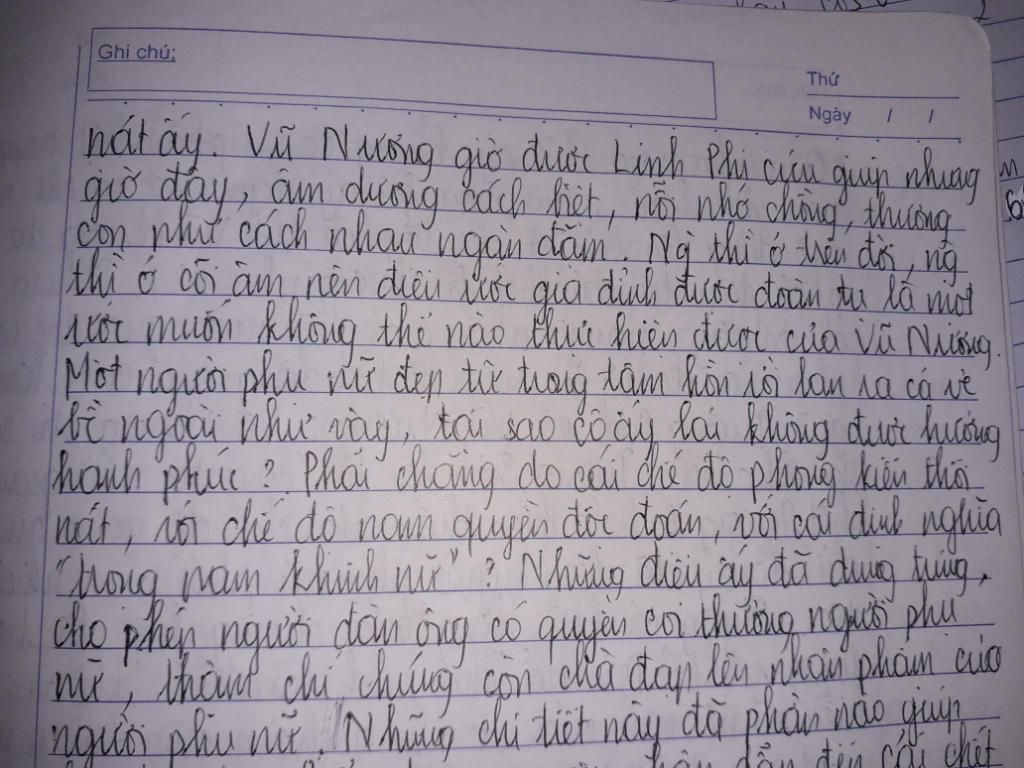 Ghi chú:
Thứ
Ngày / /
nát ấy. Vũ Nương giờ được Linh Phi cứu giúp nhưng
giờ đây, âm dương cách biệt, nỗi nhớ chồng, thương
con như cách nhau ngàn dặm. Ng thì ở trên đời, ng
thì ở cõi âm nên điều ước gia đình được đoàn tụ là một
ước muốn không thể nào thực hiện được của Vũ Nương.
Một người phụ nữ đẹp từ trong tâm hồn rồi lan ra cả vẻ
bề ngoài như vậy, tại sao cô ấy lại không được hưởng
hạnh phúc? Phải chăng do cái chế độ phong kiến thối
nát, với chế độ nam quyền độc đoán, với cái định nghĩa
"trọng nam khinh nữ"? Những điều ấy đã dung túng,
cho phép người đàn ông có quyền coi thường người phụ
nữ, thậm chí chúng còn chà đạp lên nhân phẩm của
người phụ nữ. Những chi tiết này đã phần nào giúp
dẫn đến cái chết